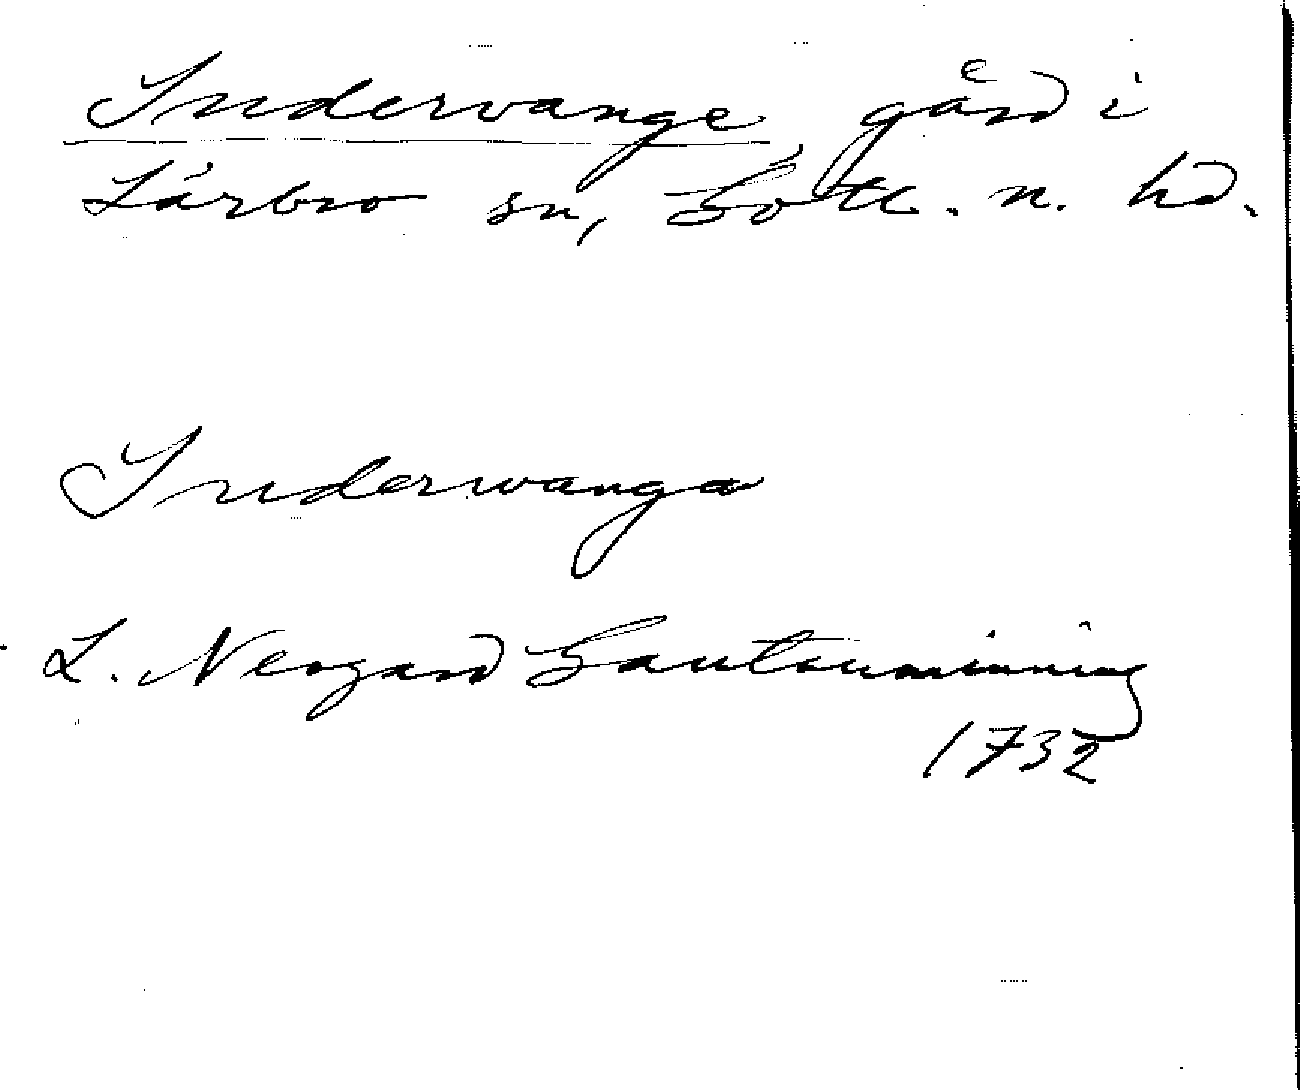 Indervange gård i
Lärbro sn, Gotl. n. hd.
Inderwanga
L. Neogard Gautauminning
1732